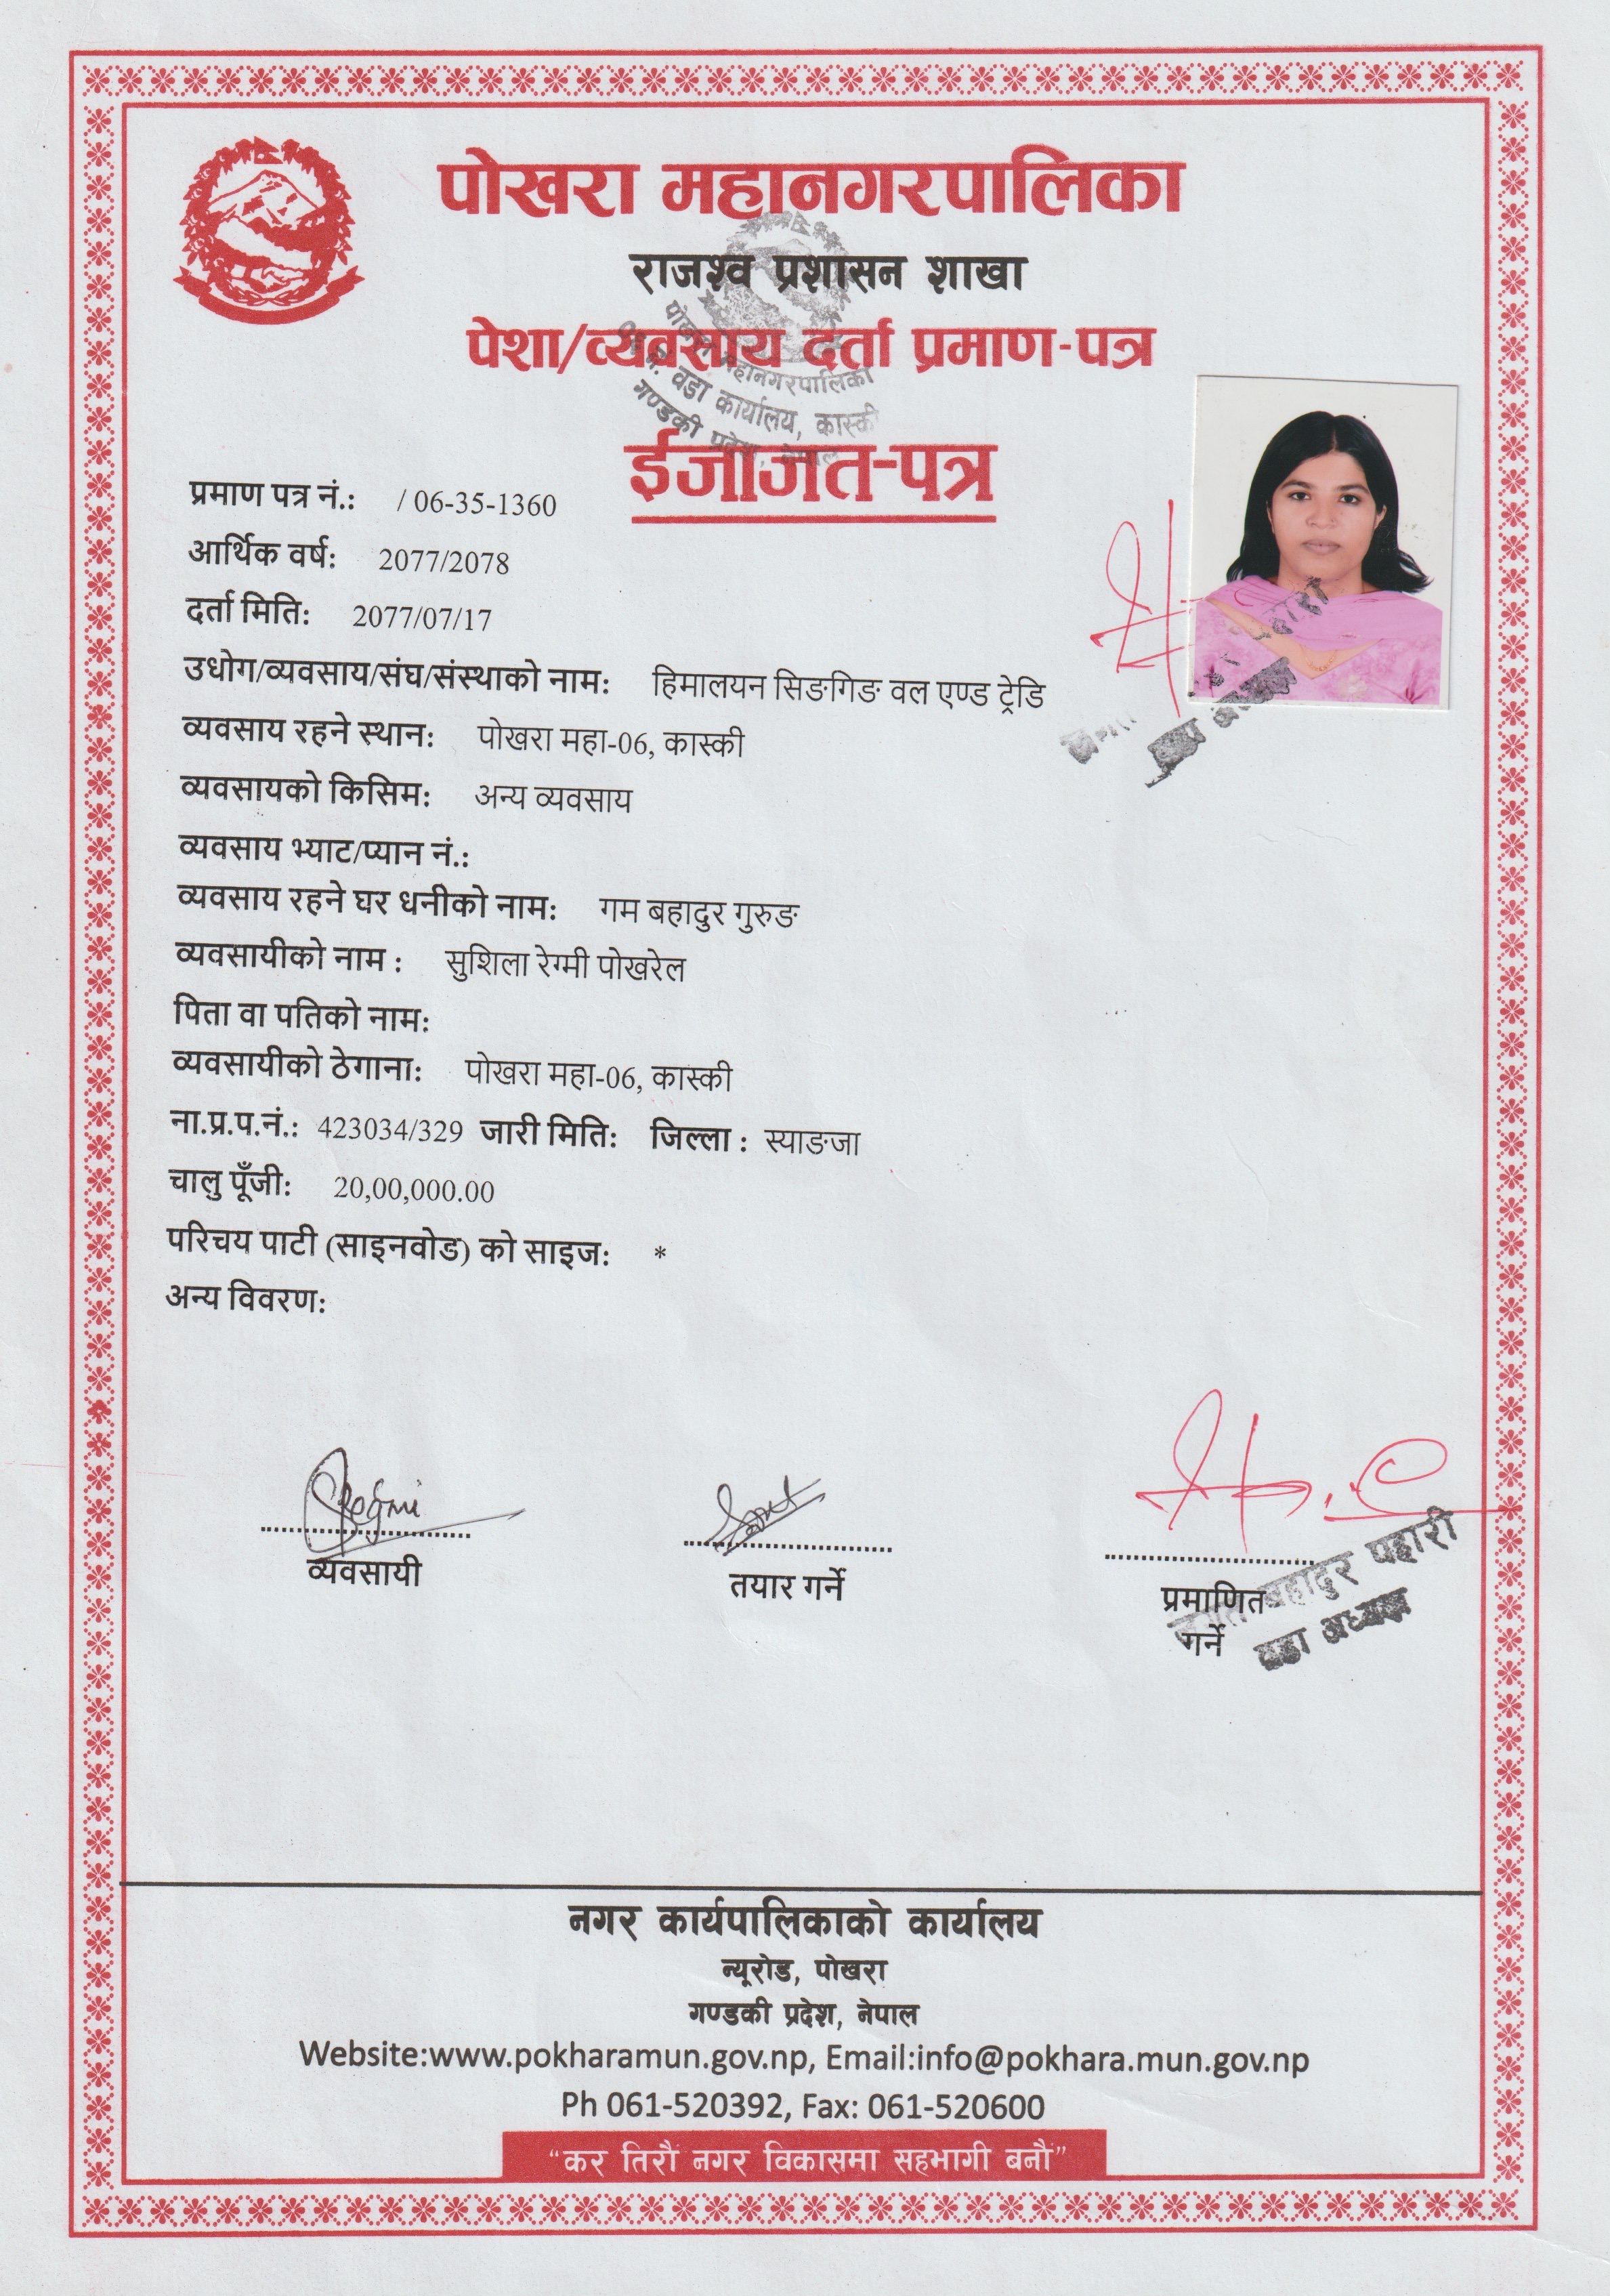 पोखरा महानगरपालिका
राजश्व प्रशासन शाखा
पेशा/व्यवसाय दर्ता प्रमाण-पत्र
पोखरा महानगरपालिका
वडा कार्यालय, कास्की
गण्डकी प्रदेश, नेपाल
ईजाजत-पत्र
प्रमाण पत्र नं.: / 06-35-1360
आर्थिक वर्ष: 2077/2078
दर्ता मिति: 2077/07/17
उधोग/व्यवसाय/संघ/संस्थाको नाम: हिमालयन सिङगिङ वल एण्ड ट्रेडि
व्यवसाय रहने स्थान: पोखरा महा-06, कास्की
व्यवसायको किसिम: अन्य व्यवसाय
व्यवसाय भ्याट/प्यान नं.:
व्यवसाय रहने घर धनीको नाम: गम बहादुर गुरुङ
व्यवसायीको नाम : सुशिला रेग्मी पोखरेल
पिता वा पतिको नाम:
व्यवसायीको ठेगाना: पोखरा महा-06, कास्की
ना.प्र.प.नं.: 423034/329 जारी मिति: जिल्ला : स्याङजा
चालु पूँजी: 20,00,000.00
परिचय पाटी (साइनवोड) को साइज: *
अन्य विवरण:
Regmi
व्यवसायी
तयार गर्ने
प्रमाणित
गर्ने
बहादुर पहारी
वडा अध्यक्ष
नगर कार्यपालिकाको कार्यालय
न्यूरोड, पोखरा
गण्डकी प्रदेश, नेपाल
Website:www.pokharamun.gov.np, Email:info@pokhara.mun.gov.np
Ph 061-520392, Fax: 061-520600
“कर तिरौं नगर विकासमा सहभागी बनौं”